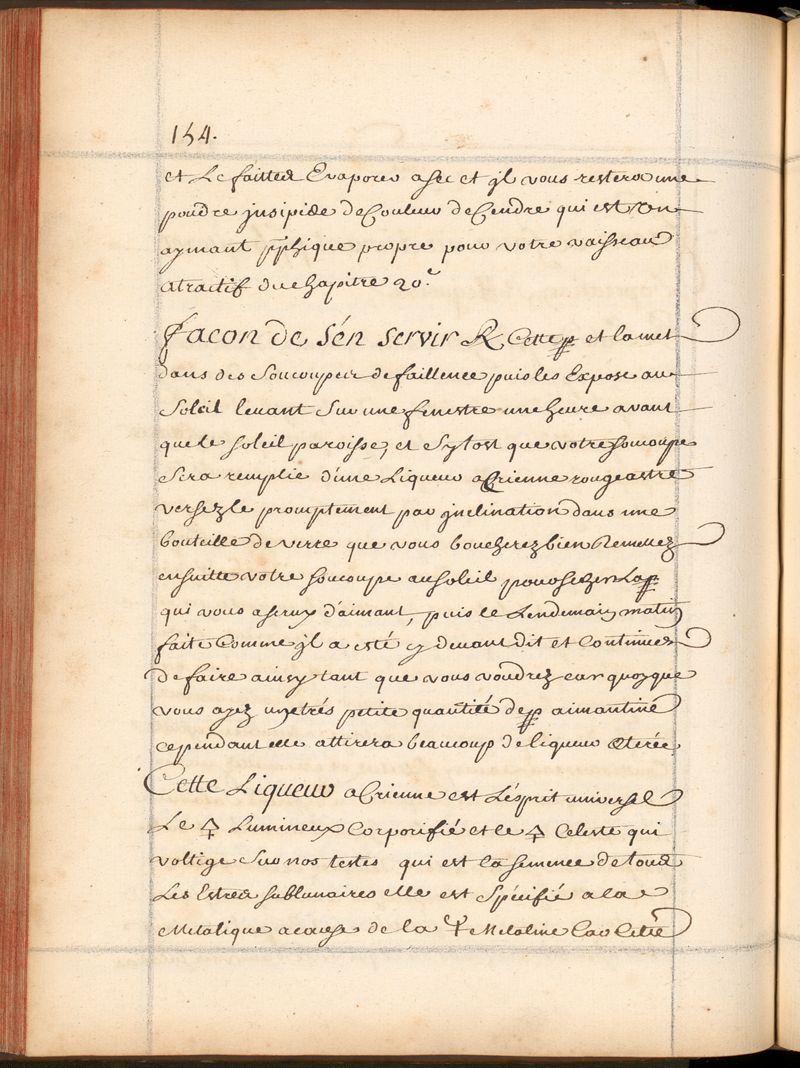 154.
et Le faittes Evaporer a sec et jl vous restera une
poudre jnsipide de Couleur de Cendre qui est Un
aymant pphique propre pour votre vaisseau
atractif du chapitre 20.e
Facon de s'én servir ℞ Cette et la met
dans des Soucoupes de faillence puis les Expose au
Soleil levant Sur une fenestre une heure avant
que le soleil paroisse, et Sytost que votre soucoupe
Sera remplie d'une Liqueur aËrienne rougeastre
versez le promptement par jnclination dans une
bouteille de verre que vous boucherez bien Remettez
ensuitte votre soucoupe au soleil pour La
qui vous a servy d'aimant, puis le Lendemain matin
faite Comme jl a esté cy devant dit et Continuez
de faire ainsy tant que vous voudrez car quoyque
vous ayez un trés petite quantité de aimantine
cependant elle attirera beaucoup de liqueur Eterée
Cette Liqueur aErienne est Lésprit universel
Le 🜍 Lumineux Corporifié et le 🜍 Celeste qui
voltige Sur nos testes qui est la semence de tous
Les Estres sublunaires elle est Spécifié a la
Metalique a cause de la Metaline Car Cette